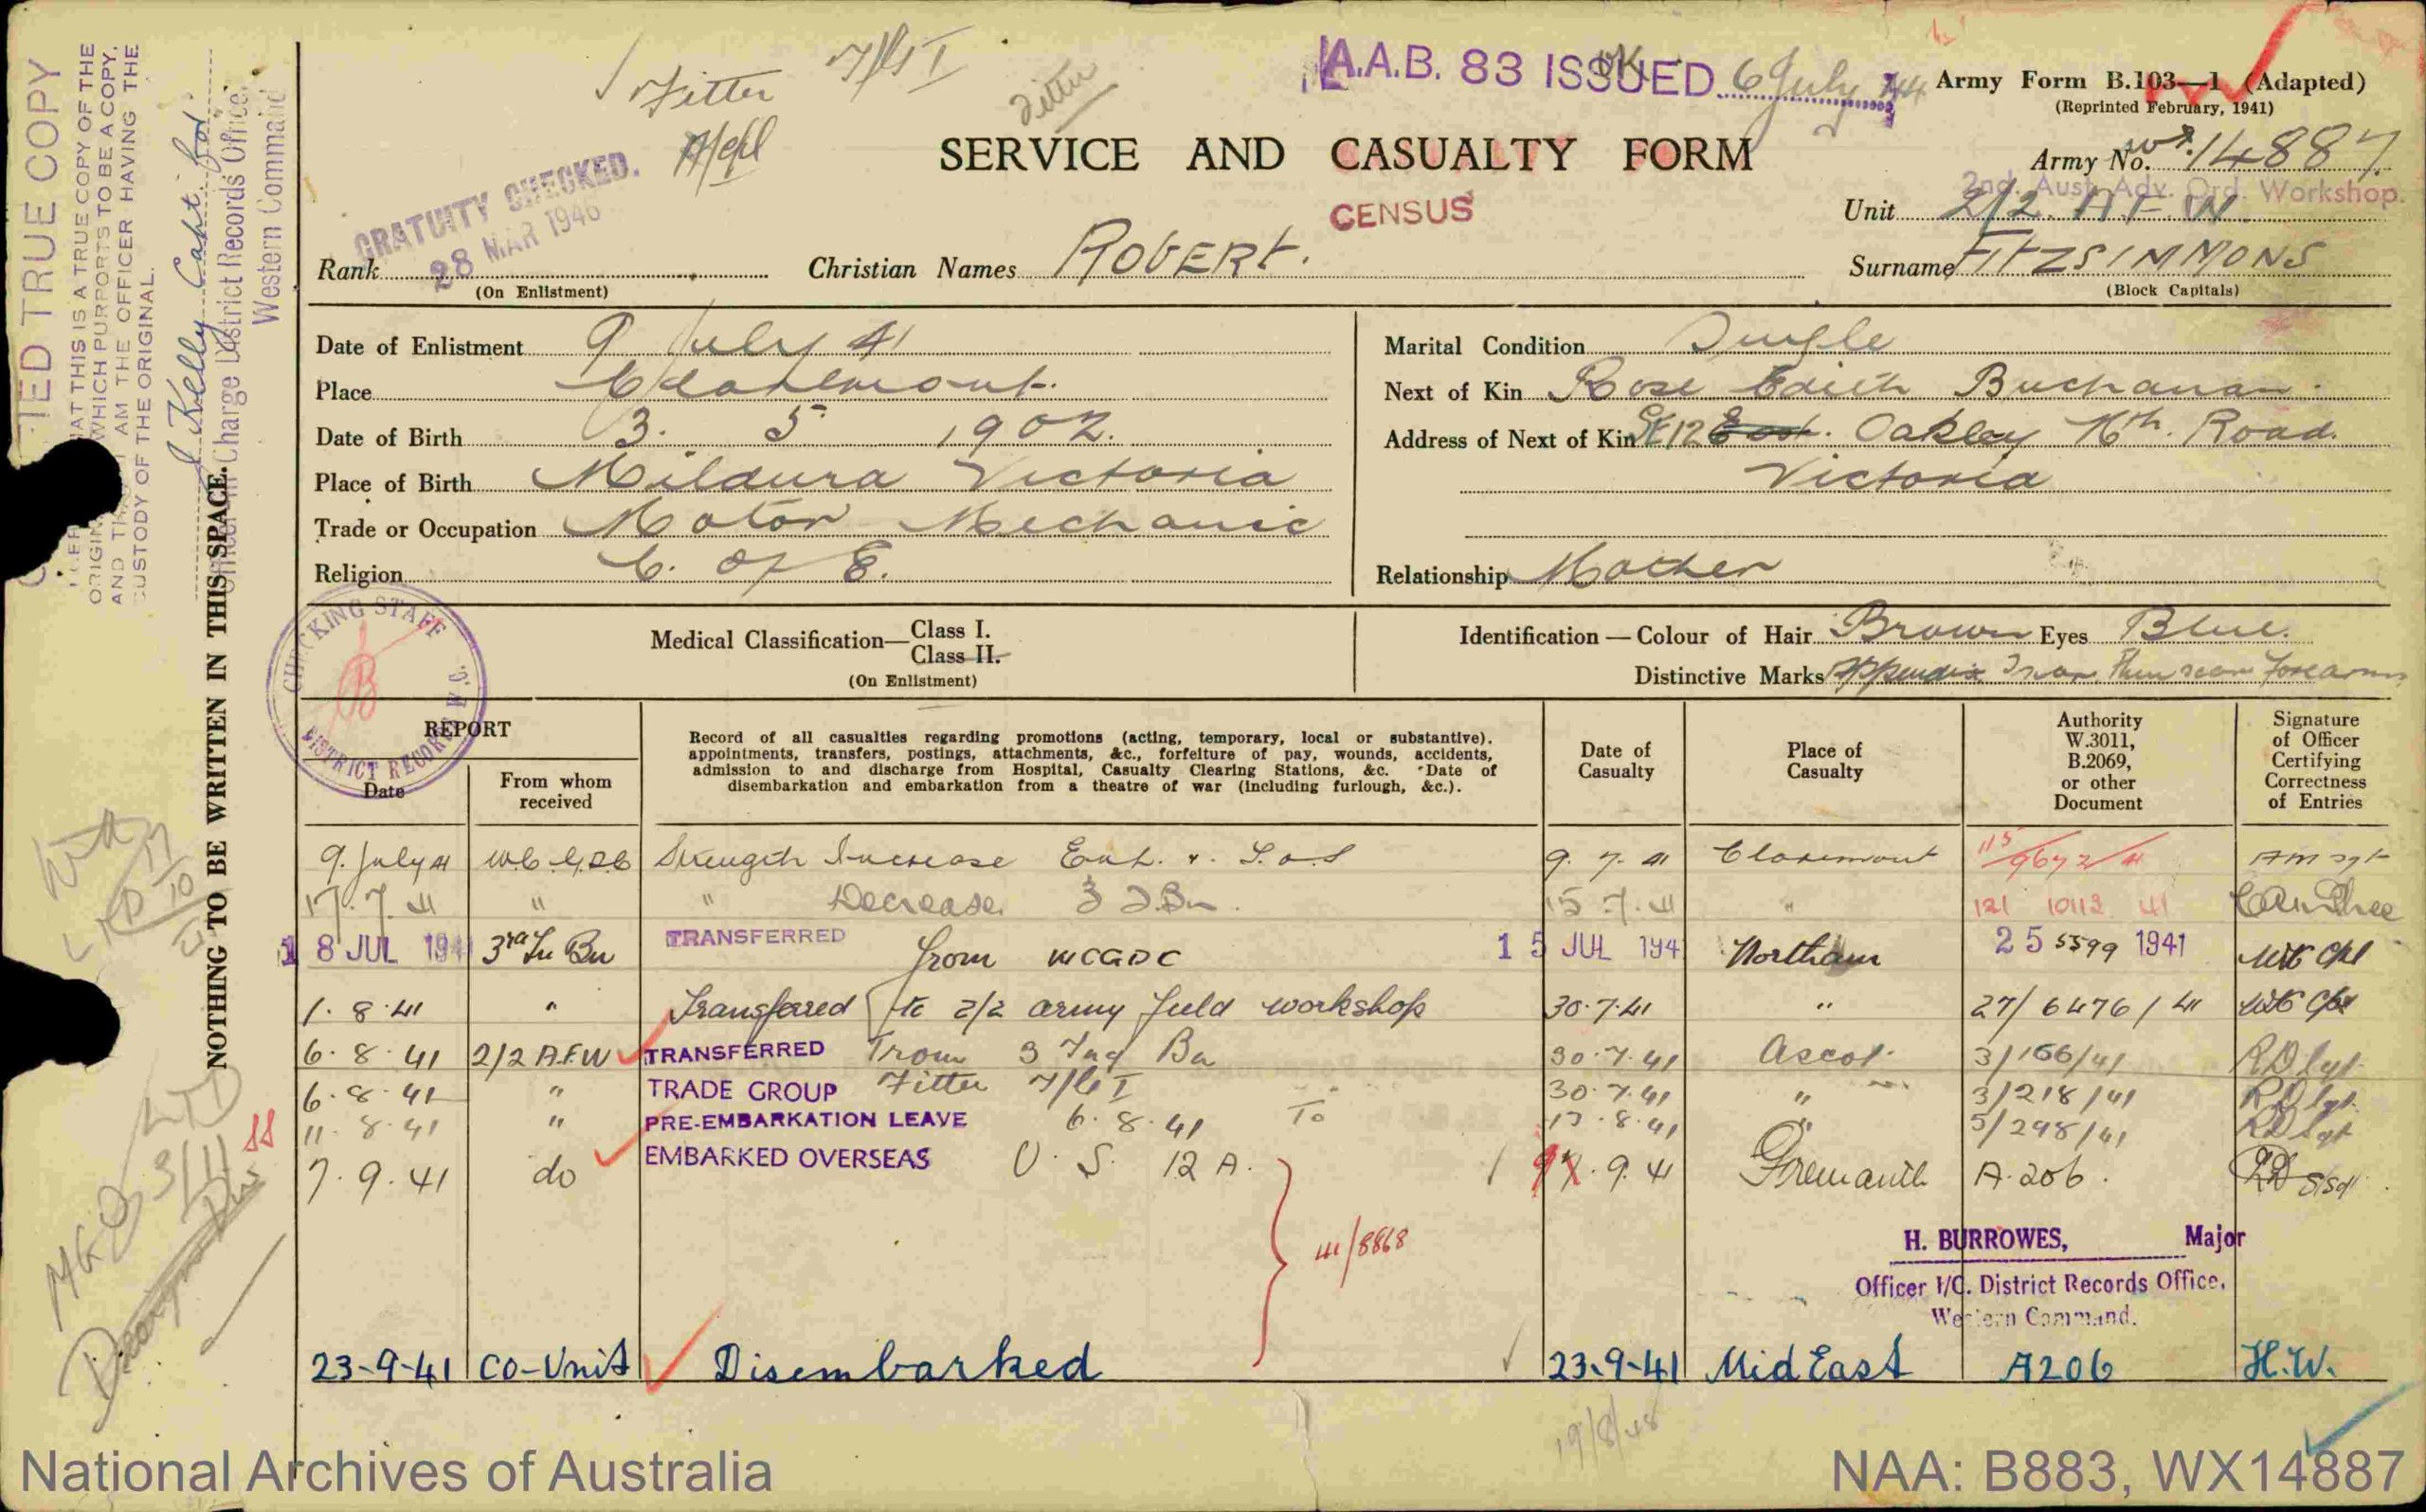 Fitter T/G I
Fitter
A.A.B. 83 ISSUED 6 July 44
Army Form B.103—1 (Adapted)
(Reprinted February, 1941)
SERVICE AND CASUALTY FORM
CENSUS
GRATUITY CHECKED.
28 MAR 1946
Army No. WX.14887.
2nd. Aust. Adv. Ord. Workshop.
Unit 2/2. A F W.
Rank
(On Enlistment)
Christian Names ROBERT.
Surname FITZSIMMONS
(Block Capitals)
Date of Enlistment 9 July 41
Place Claremont.
Date of Birth 3. 5 1902.
Place of Birth Mildura Victoria
Trade or Occupation Motor Mechanic
Religion C. of E.
Marital Condition Single
Next of Kin Rose Edith Buchanan.
Address of Next of Kin 12 East. Oakley Nth. Road.
Victoria
Relationship Mother
Medical Classification— Class I.
Class II.
(On Enlistment)
Identification — Colour of Hair Brown Eyes Blue.
Distinctive Marks Appendix Scar. scar forearm
CHECKING STAFF
DISTRICT RECORDS
REPORT
Date
From whom received
Record of all casualties regarding promotions (acting, temporary, local or substantive),
appointments, transfers, postings, attachments, &c., forfeiture of pay, wounds, accidents,
admission to and discharge from Hospital, Casualty Clearing Stations, &c. Date of
disembarkation and embarkation from a theatre of war (including furlough, &c.).
Date of Casualty
Place of Casualty
Authority W.3011, B.2069, or other Document
Signature of Officer Certifying Correctness of Entries
9. July 41 Strength Increase 9. 7. 41 Claremont 115/9672/41
17. 7. 41 " " Decrease 15. 7. 41 " 121 10113 41
18 JUL 1941 3rd Tn Bn TRANSFERRED from WCGDC 15 JUL 194 Northam 25 5599 1941
1. 8. 41 " Transferred to 2/2 army field workshop 30.7.41 " 27/6476/41
6. 8. 41 2/2 A.F.W TRANSFERRED From 3 Bn 30.7.41 Ascot. 3/166/41
6. 8. 41 " TRADE GROUP Fitter T/G I 30.7.41 " 3/218/41
11. 8. 41 " PRE-EMBARKATION LEAVE 6. 8. 41 To 17.8.41 " 5/298/41
7. 9. 41 do EMBARKED OVERSEAS U. S. 12 A. 9. 41 Fremantle A.206.
111/8868
H. BURROWES, Major
Officer I/C. District Records Office,
Western Command.
23-9-41 CO-Unit Disembarked 23-9-41 Mid East A206 H.W.
NOTHING TO BE WRITTEN IN THIS SPACE.
TRUE COPY
THAT THIS IS A TRUE COPY OF THE
WHICH PURPORTS TO BE A COPY.
AM THE OFFICER HAVING THE
CUSTODY OF THE ORIGINAL.
J Kelly Capt for
Charge District Records Office,
Western Command
National Archives of Australia
NAA: B883, WX14887